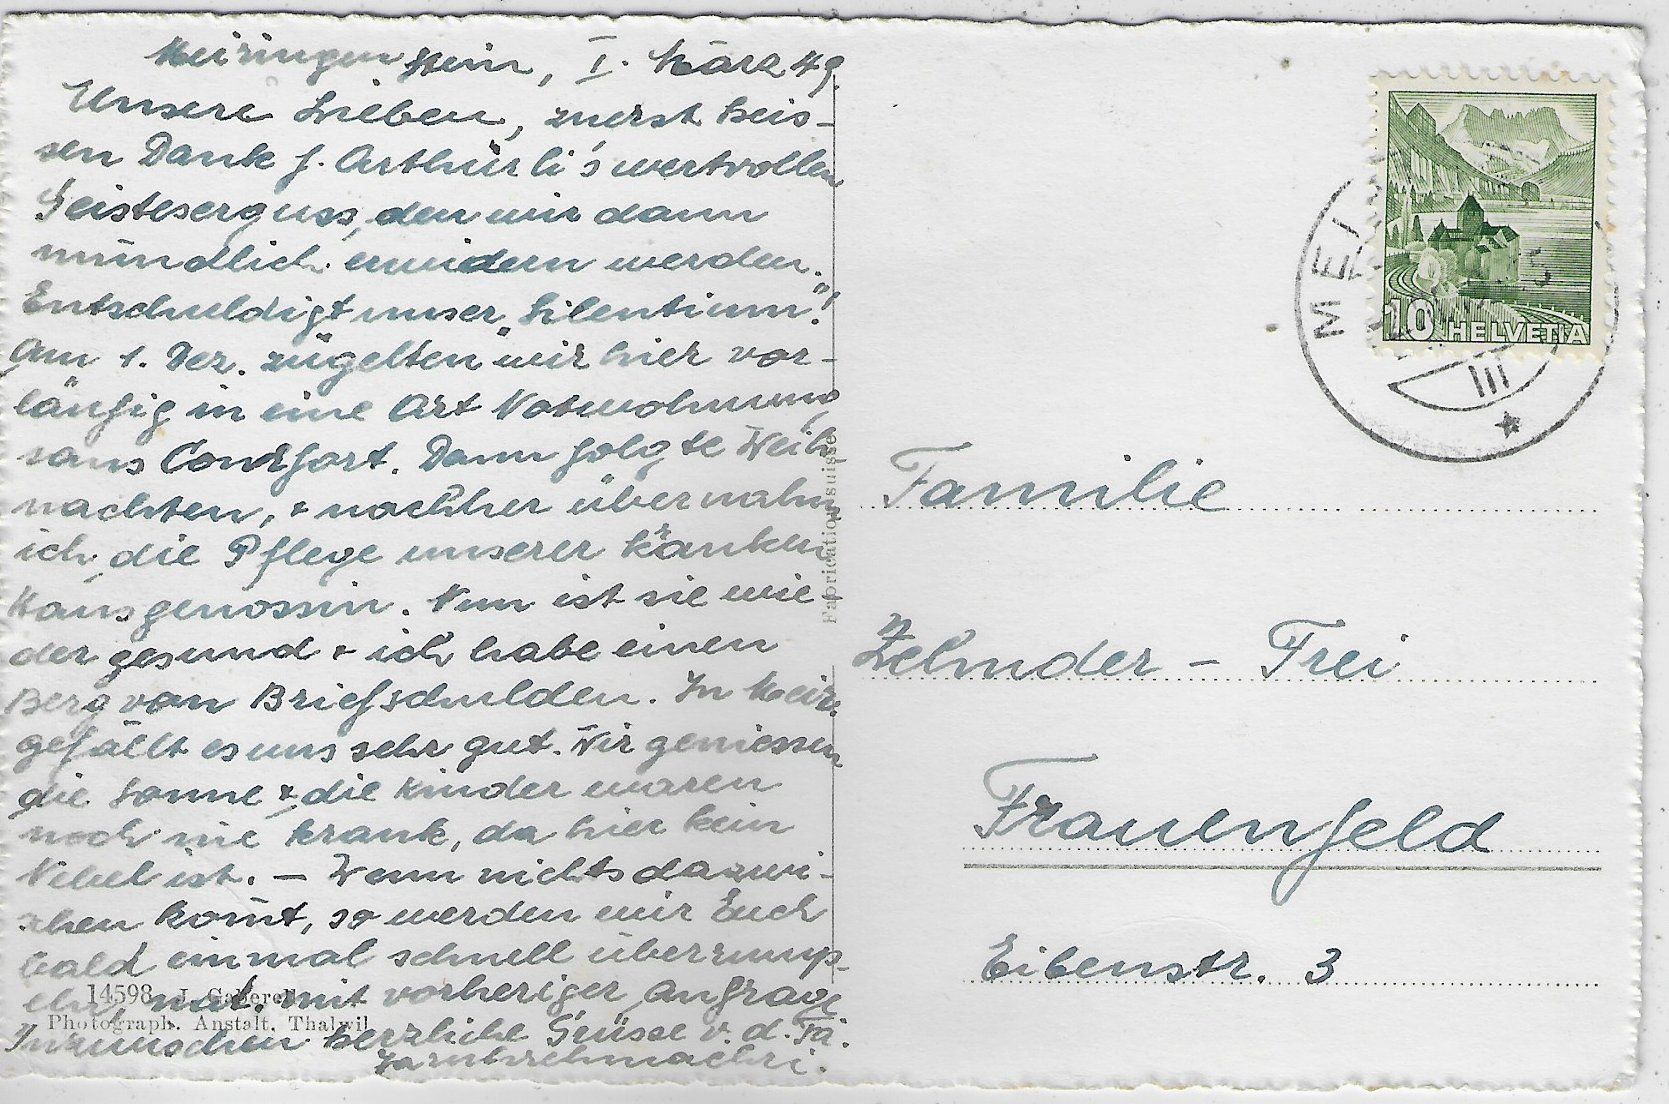 Meiringen, 1. März 49.
Unsere Lieben, zuerst heis-
sen Dank f. Arthürli's wertvollen
Geisteserguss, den wir dann
mündlich erwidern werden.
Entschuldigt unser „Silentium"!
Am 1. Dez. zügelten wir hier vor-
läufig in eine Art Notwohnung
sans Comfort. Dann folgte Weih-
nachten, & nachher übernahm
ich die Pflege unserer kranken
Hausgenossin. Nun ist sie wie-
der gesund & ich habe einen
Berg von Briefschulden. In Meir.
gefällt es uns sehr gut. Wir geniessen
die Sonne & die Kinder waren
noch nie krank, da hier kein
Nebel ist. – Wenn nichts dazwi-
schen kom̄t, so werden wir Euch
bald einmal schnell überrump-
eln, nat. mit vorheriger Anfrage
Inzwischen herzliche Grüsse v. d. Fa.
14598 J. Gaberell
Photograph. Anstalt, Thalwil
Fabrication suisse
HELVETIA
10
MEI
III
Familie
Zehnder – Frei
Frauenfeld
Eibenstr. 3